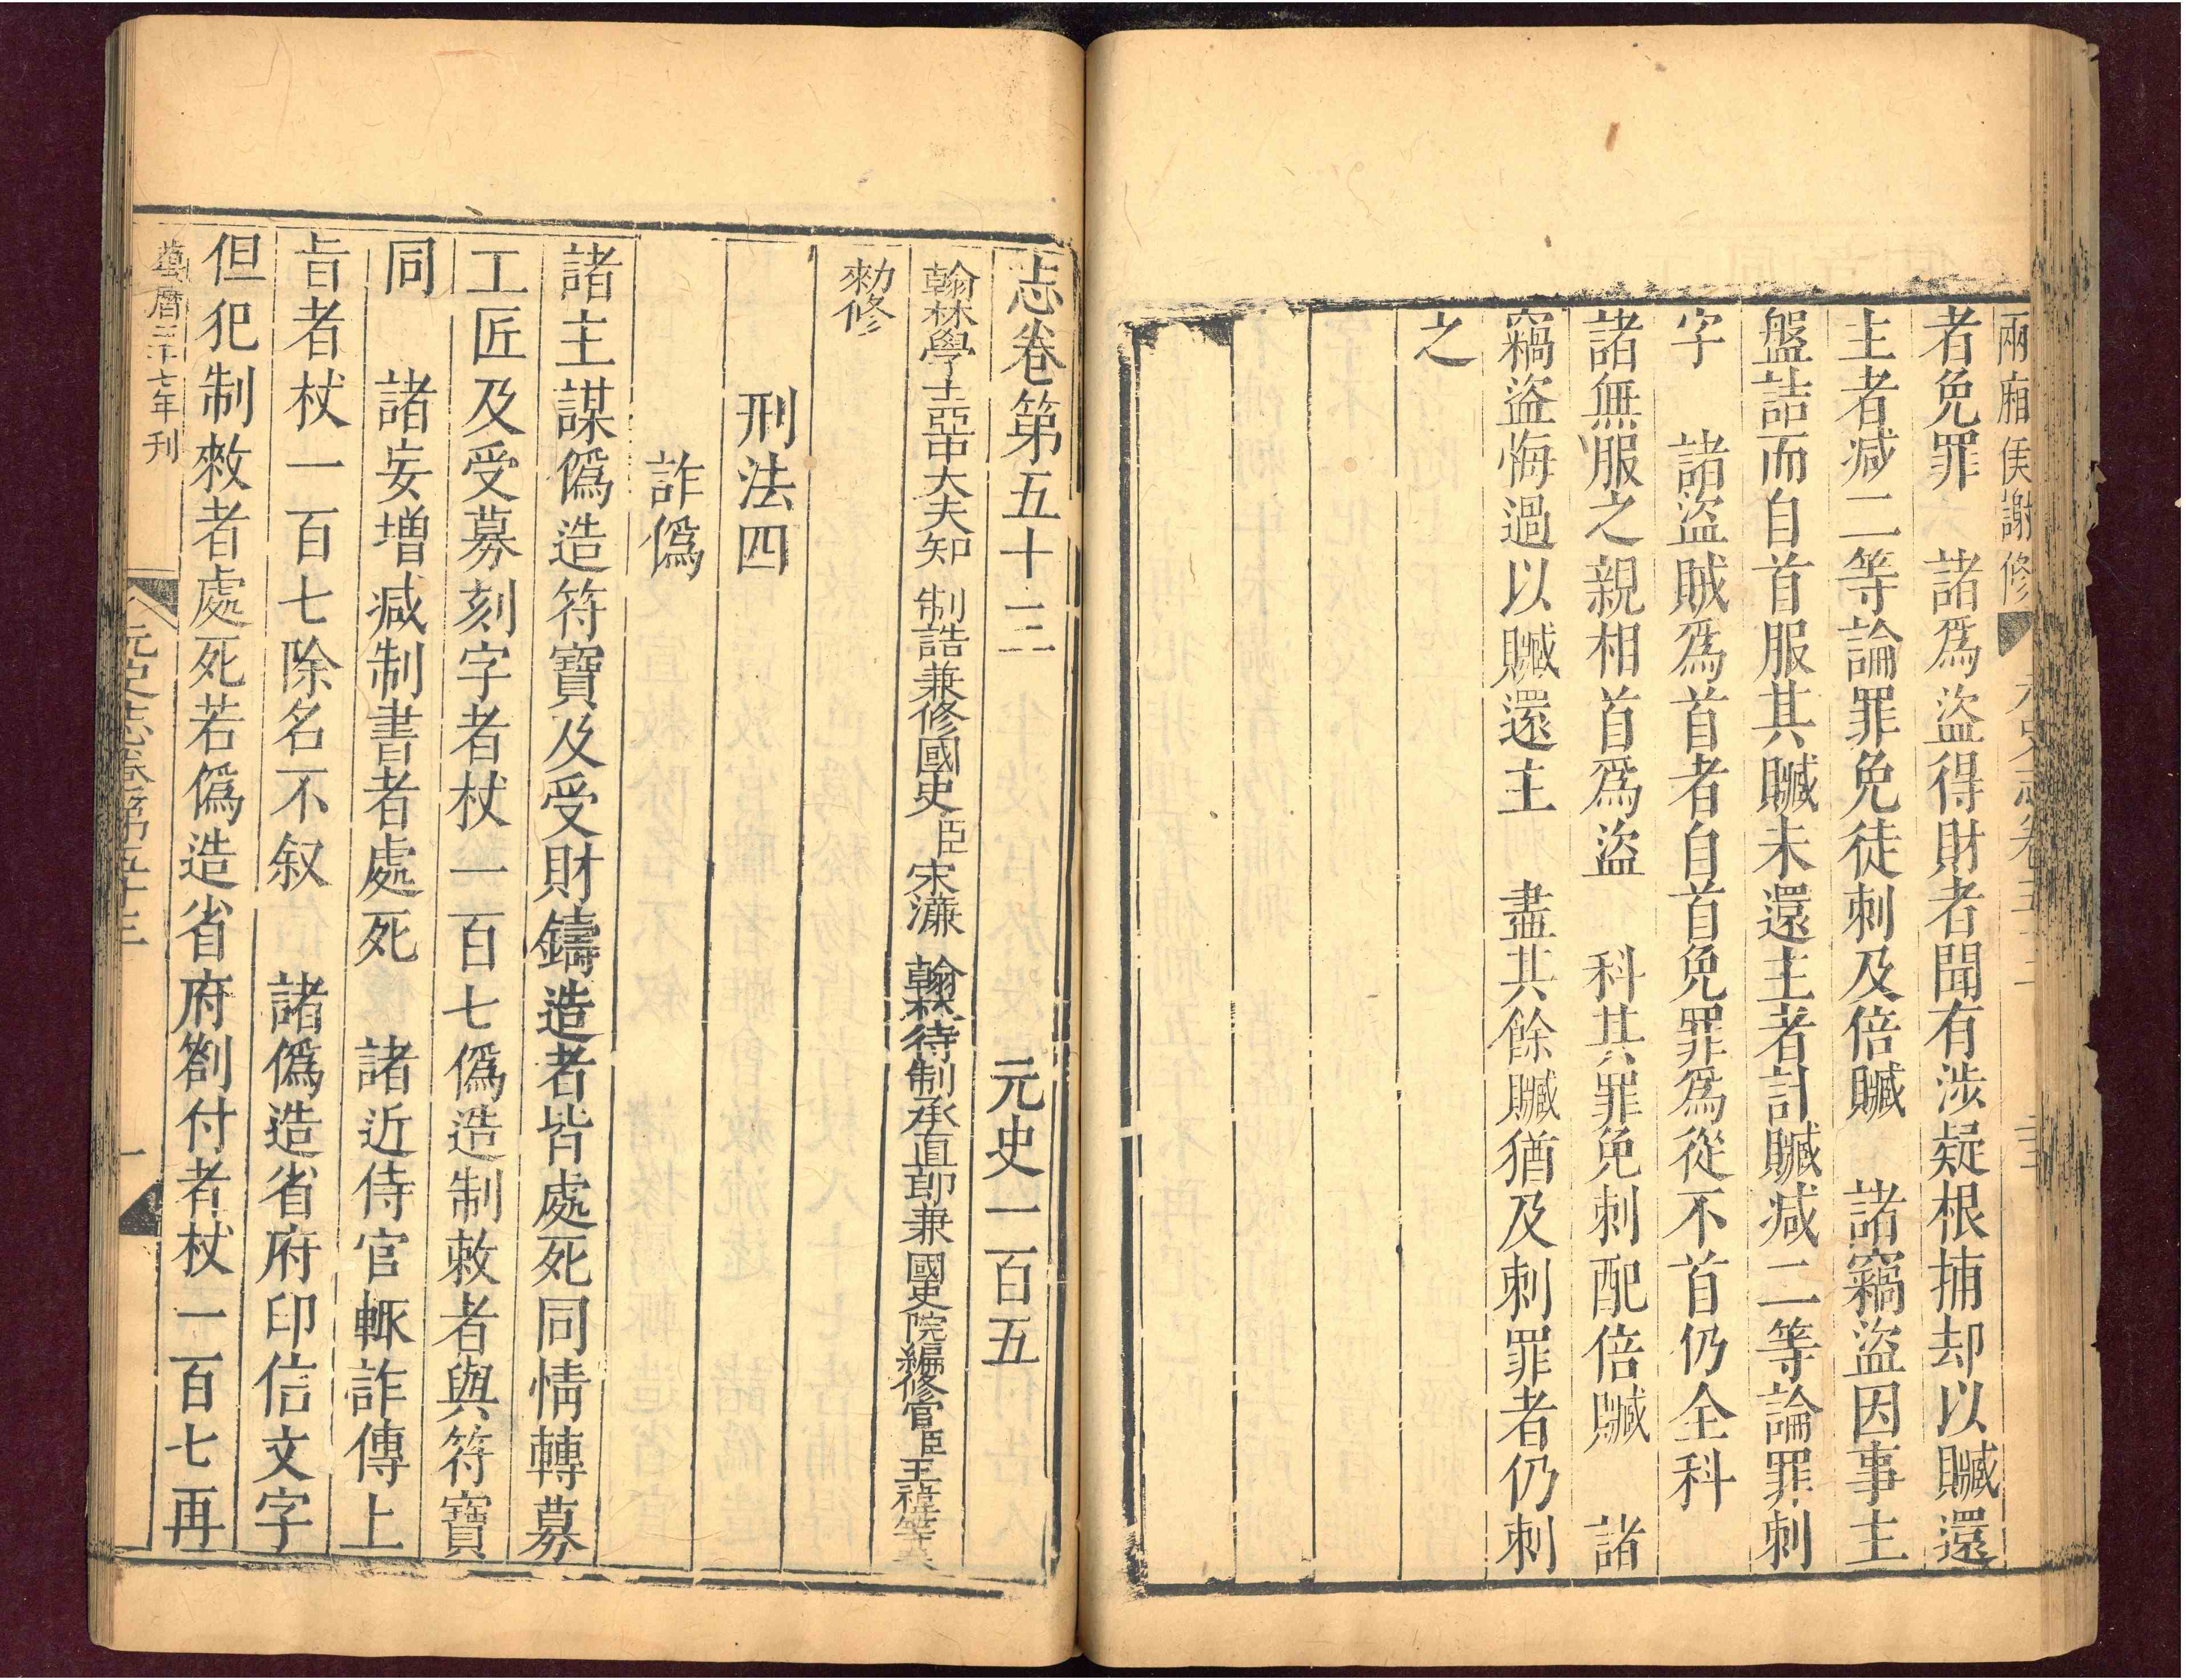 兩廂侯謝修 元史志卷五十二 三三
者免罪 諸爲盜得財者聞有涉疑根捕却以贓還
主者减二等論罪免徒刺及倍贓 諸竊盜因事主
盤詰而自首服其贓未還主者計贓减二等論罪刺
字 諸盜賊爲首者自首免罪爲從不首仍全科
諸無服之親相首爲盜 科其罪免刺配倍贓 諸
竊盜悔過以贓還主 盡其餘贓猶及刺罪者仍刺
之
志卷第五十三 元史一百五
翰林學士亞中大夫知 制誥兼修國史臣宋濂 翰林待制承直郎兼 國史院編修官臣王禕等奉
勑修
刑法四
詐僞
諸主謀僞造符寶及受財鑄造者皆處死同情轉募
工匠及受募刻字者杖一百七僞造制敕者與符寶
同 諸妄增减制書者處死 諸近侍官輒詐傳上
旨者杖一百七除名不叙 諸僞造省府印信文字
但犯制敕者處死若僞造省府劄付者杖一百七再
萬曆三十七年刊 元史志卷第五十三 一